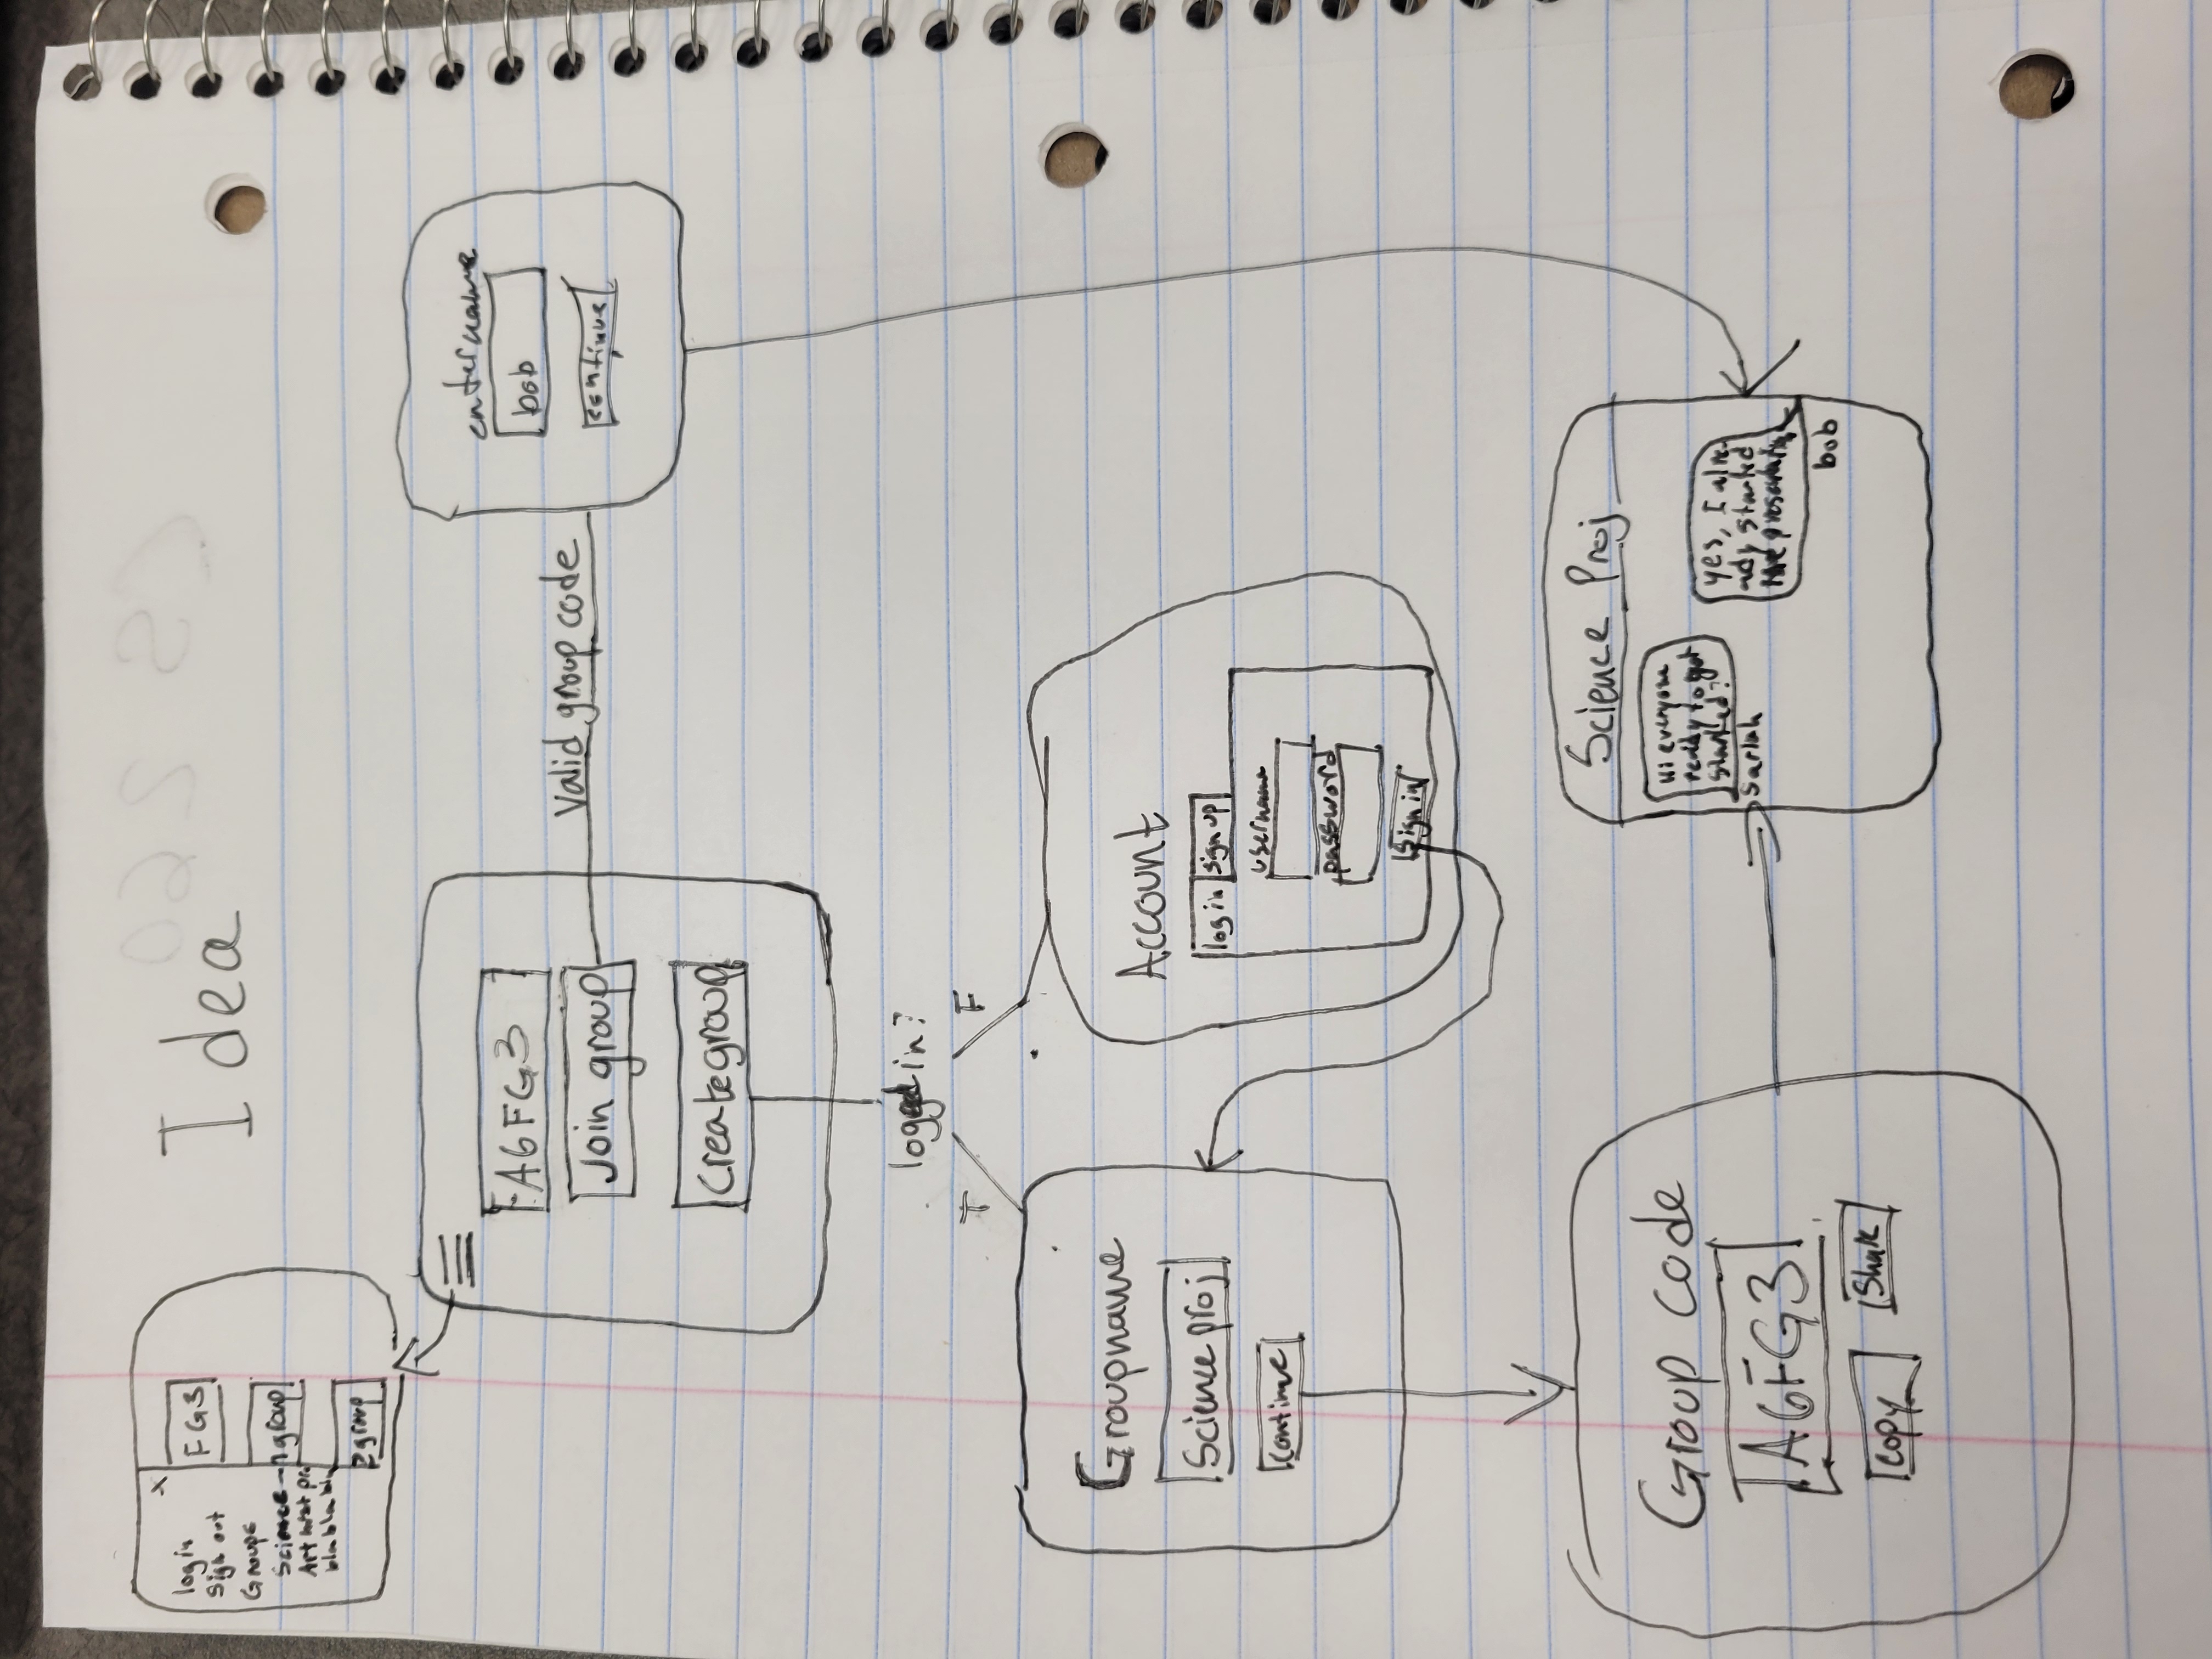 CS 260
Idea
x
login
Sign out
Groups
Science
Art hist pro
bla bla bla
FG3
n group
group
A6FG3
Join group
Create group
Valid group code
enter name
bob
continue
logged in?
T
F
Groupname
Science proj
continue
Account
log in
sign up
username
password
Sign in
Group code
A6FG3
copy
Share
Science Proj
Hi everyone
ready to get
started?
Sariah
yes, I alre
ady started
the
bob